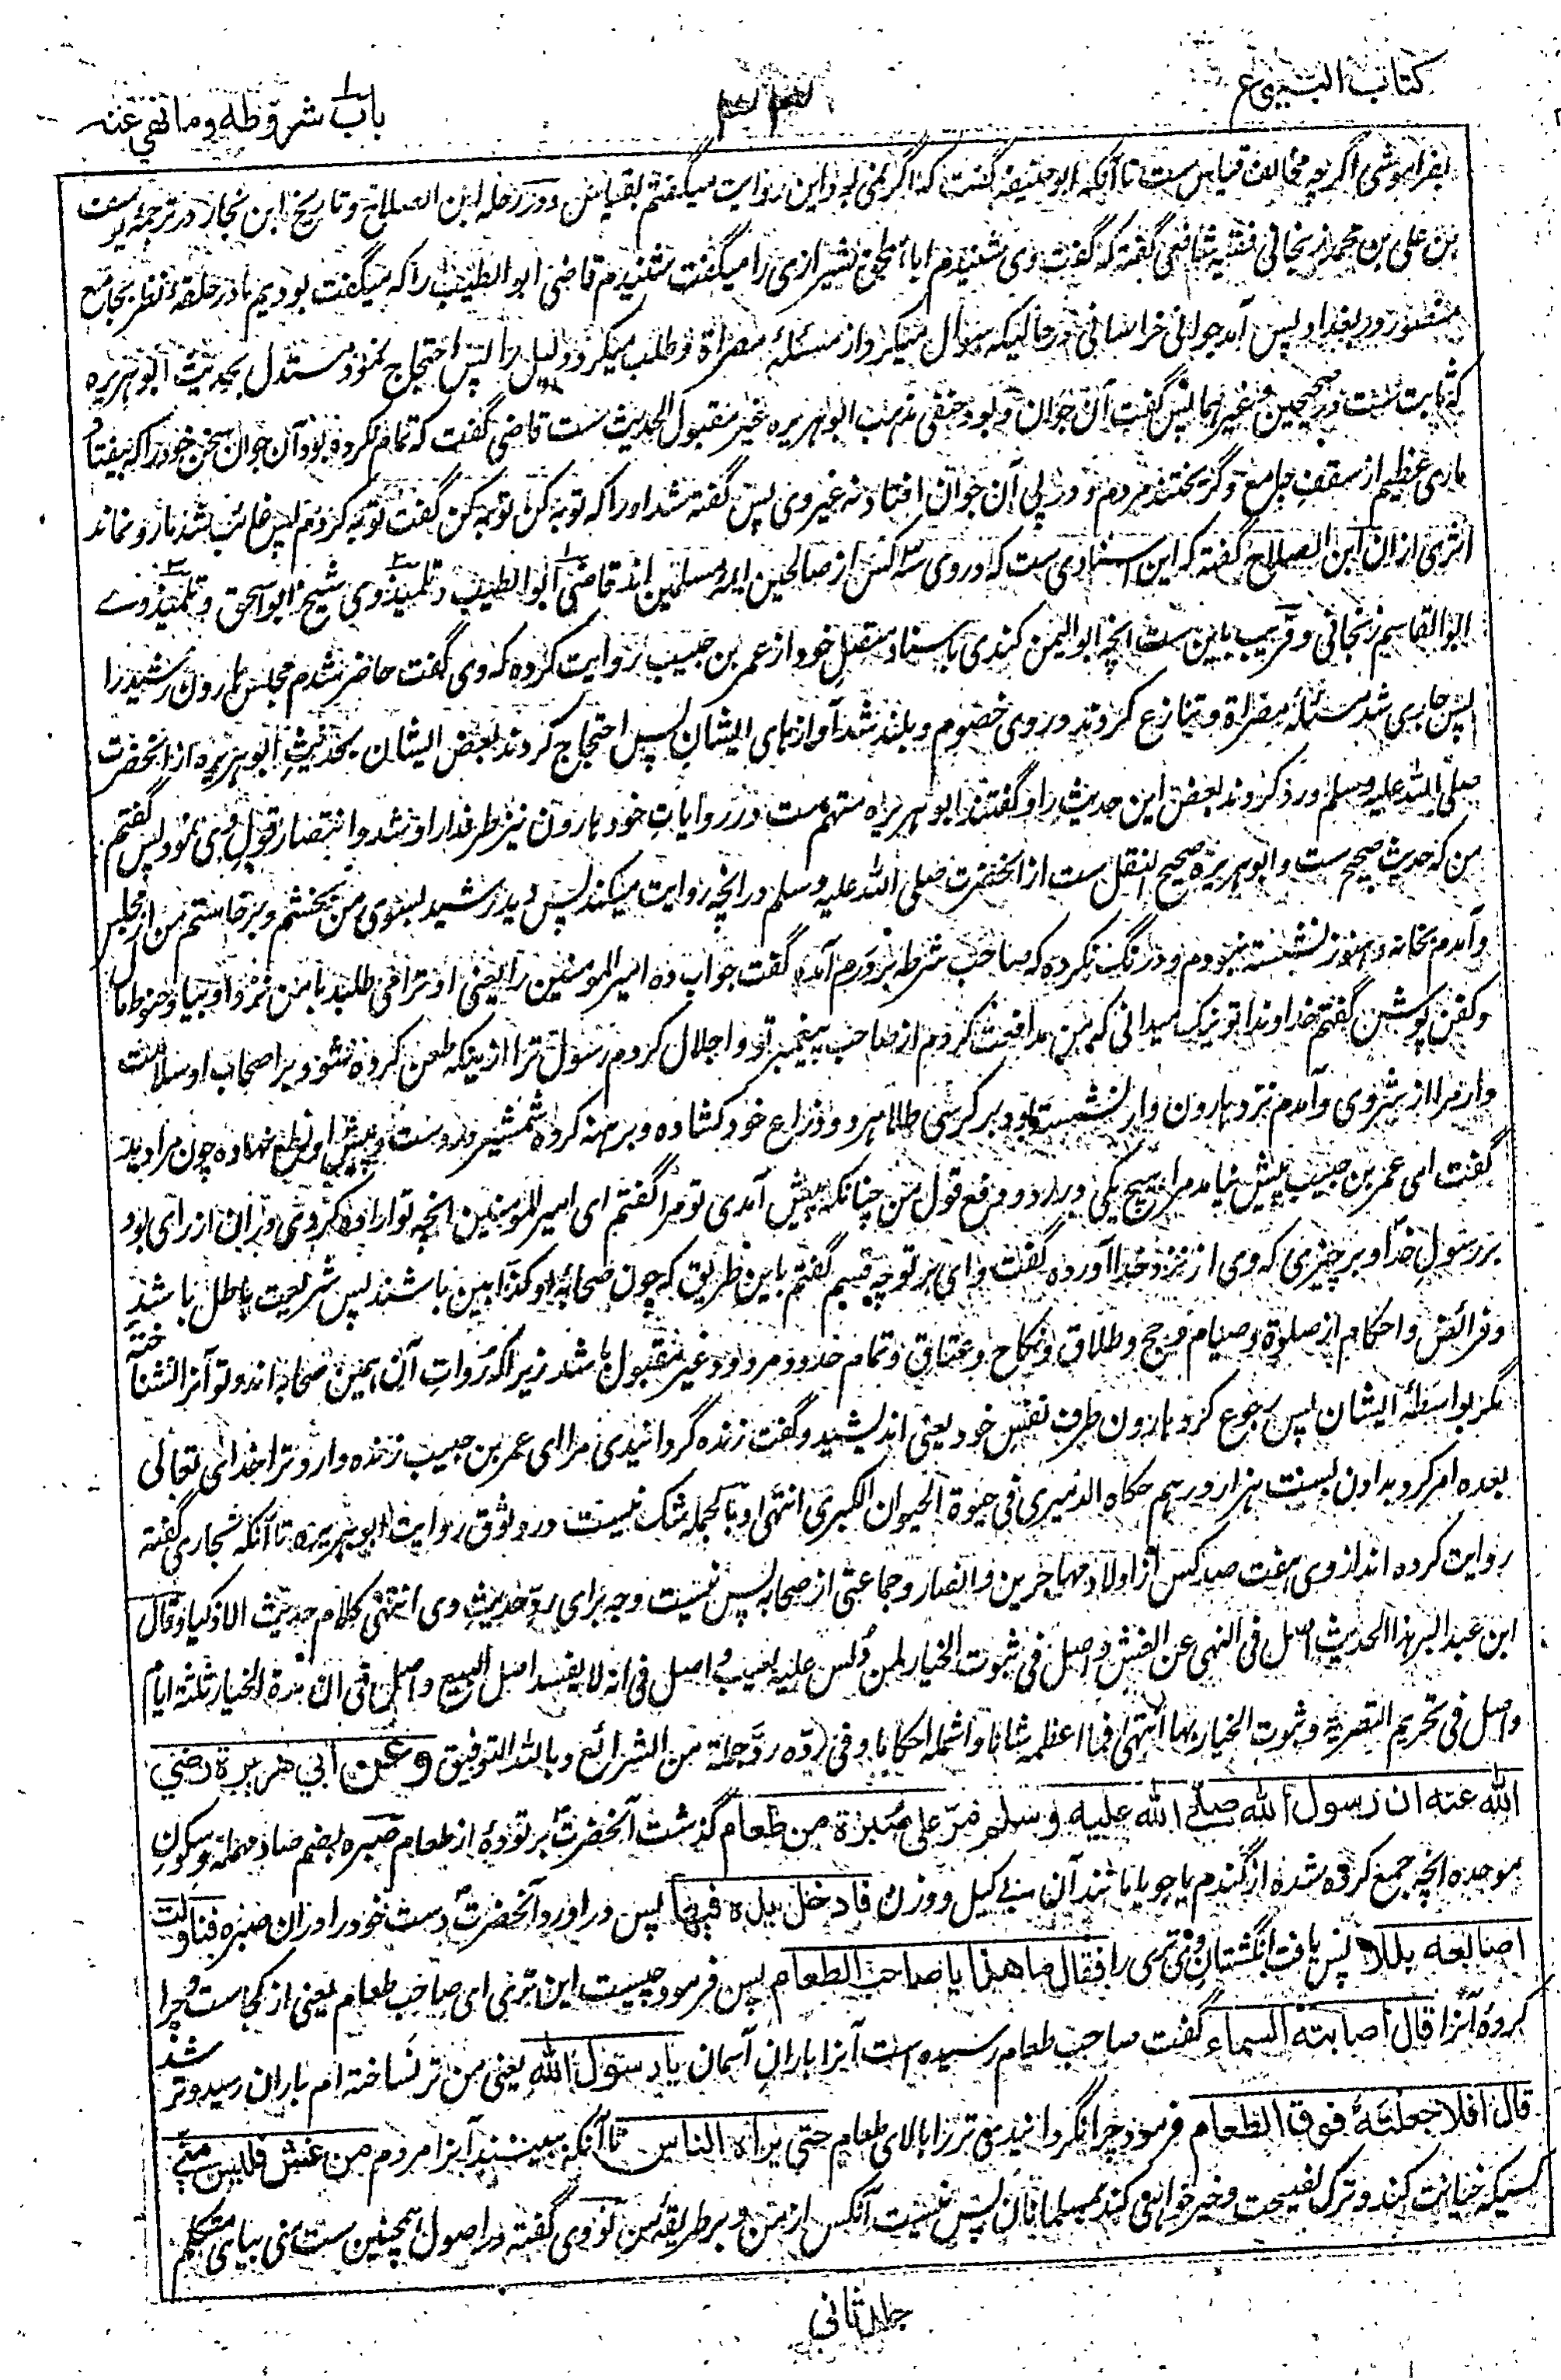 کتاب البیوع
۳۳
باب شروطه وما نهي عنه
بفراموشی اگرچه مخالف قیاس ست تا آنکه ابو حنیفه گفت که اگر نمی بود این روایت میگفتم بقیاس ودر رحلهٔ ابن الصلاح وتاریخ ابن نجار در ترجمهٔ یوسف
بن علی بن محمد زنجانی فقیه شافعی گفته که گفت وی شنیدم ابا اسحق شیرازی را میگفت شنیدم قاضی ابو الطیب را که میگفت بودیم ما در حلقهٔ نظر بجامع
منصور در بغداد پس آمد جوانی خراسانی در حالیکه سوال میکرد از مسئلهٔ مصراة وطلب میکرد دلیل را پس احتجاج نمود مستدل بحدیث ابو هریره
که ثابت ست در صحیحین وغیرهما پس گفت آن جوان وبود حنفی مذهب ابو هریره غیر مقبول الحدیث ست قاضی گفت که تمام نکرده بود آن جوان سخن خود را که بیفتاد
ماری عظیم از سقف جامع وگریختند مردم ودر پی آن جوان افتاد نه غیر وی پس گفته شد او را که توبه کن توبه کن گفت توبه کردم پس غائب شد مار ونماند
اثری ازان ابن الصلاح گفته که این اسنادی ست که در وی سه کس از صالحین ایمه مسلمین اند قاضی ابو الطیب وتلمیذ وی شیخ ابو اسحق وتلمیذ وے
ابو القاسم زنجانی وقریب باین ست انچه ابو الیمن کندی باسناد متصل خود از عمر بن حبیب روایت کرده که وی گفت حاضر شدم مجلس هارون رشید را
پس جاری شد مسئلهٔ مصراة وتنازع کردند در وی خصوم وبلند شد آوازهای ایشان پس احتجاج کردند بعض ایشان بحدیث ابو هریره از انحضرت
صلی الله علیه وسلم ورد کردند بعض این حدیث را وگفتند ابو هریره متهم ست در روایات خود هارون نیز طرفدار او شد وانتصار قول وی نمود پس گفتم
من که حدیث صحیح ست وابو هریره صحیح النقل ست از انحضرت صلی الله علیه وسلم در انچه روایت میکند پس دید رشید بسوی من بخشم وبرخاستم من از مجلس
وآمدم بخانه وهنوز ننشسته بودم ودرنگ نکرده که صاحب شرطه بر درم آمده گفت جواب ده امیر المومنین را یعنی او ترا می طلبد با من نزد او بیا وحنوط مال
وکفن پوش من گفتم خداوندا تو نیک میدانی که من مدافعت کردم از صاحب پیغمبر تو واجلال کردم رسول ترا ازینکه طعن کرده شود بر اصحاب او سلامت
دار مرا از شر وی وآمدم نزد هارون واو نشسته بود بر کرسی طلا هر دو ذراع خود کشاده وبرهنه کرده شمشیر در دست وپیش او نطع نهاده چون مرا دید
گفت ای عمر بن حبیب پیش نیامد مرا هیچ یکی در رد ودفع قول من چنانکه پیش آمدی تو مرا گفتم ای امیر المومنین انچه تو اراده کردی دران ازرای بود
بر رسول خدا وبر چیزی که وی از نزد خدا آورده گفت وای بر تو چه قسم گفتم باین طریق که چون صحابهٔ او کذابین باشند پس شریعت باطل باشد
وفرائض واحکام از صلوة وصیام وحج وطلاق ونکاح وعتاق وتمام حدود مردود غیر مقبول باشد زیرا که روات آن همین صحابه اند وتو آنرا نشناخته
مگر بواسطهٔ ایشان پس رجوع کرد هارون طرف نفس خود یعنی اندیشید وگفت زنده گردانیدی مرا ای عمر بن حبیب زنده دارد ترا خدای تعالی
بعده امر کرد بدادن بست هزار درهم حکاه الدمیری فی حیوة الحیوان الکبری انتهی وبالجمله شک نیست در وثوق روایت ابو هریره تا آنکه بخاری گفته
روایت کرده اند از وی هفت صد کس از اولاد مهاجرین وانصار وجماعتی از صحابه پس نیست وجه برای رد حدیث وی انتهی کلام حدیث الاذکیا وقال
ابن عبد البر هذا الحدیث اصل فی النهی عن الغش واصل فی ثبوت الخیار لمن دلس علیه بعیب واصل فی انه لا یفسد اصل البیع واصل فی ان مدة الخیار ثلثة ایام
واصل فی تحریم التصریة وثبوت الخیار بها انتهی فما اعظمه شانا واشمله احکاما وفی رده رد جملة من الشرائع وبالله التوفیق وعن أبي هريرة رضي
الله عنه ان رسول الله صلے الله عليه وسلم مرّ على صُبرة من طعام گذشت آنحضرت بر تودهٔ از طعام صبره بضم صاد مهمله وسکون
موحده انچه جمع کرده شده از گندم یا جو یا مانند آن بے کیل ووزن فادخل يده فيها پس در آورد آنحضرت دست خود را دران صبره فنالت
اصابعه بللا پس یافت انگشتان وی تری را فقال ما هذا يا صاحب الطعام پس فرمود چیست این تری ای صاحب طعام یعنی از کجاست وچرا
کردهٔ آنرا قال اصابته السماء گفت صاحب طعام رسیده است آنرا باران آسمان يا رسول الله یعنی من تر نساخته ام باران رسید وتر شد
قال افلا جعلتهٔ فوق الطعام فرمود چرا نگردانیدی تر را بالای طعام حتى يراه الناس تا آنکه ببینند آنرا مردم من غش فليس منّي
کسیکه خیانت کند وترک نصیحت وخیر خواهی کند بمسلمانان پس نیست آنکس از من وبر طریقهٔ من نووی گفته در اصول همچنین ست منی بیای متکلم
جلد ثانی